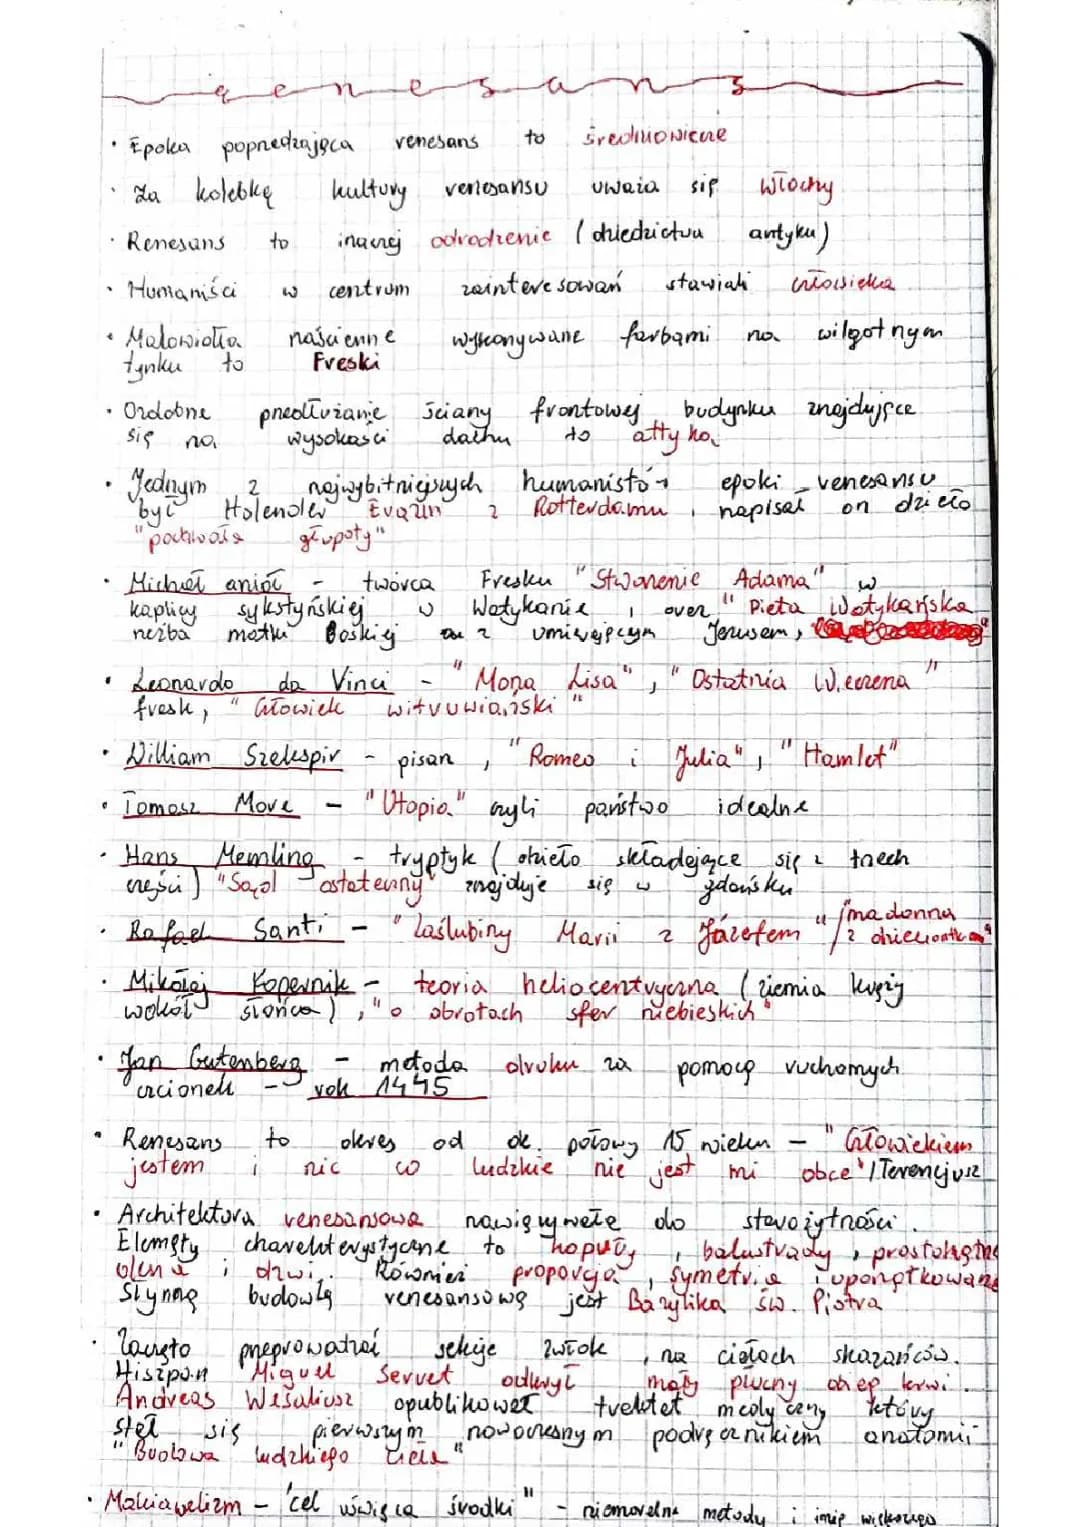 renesans
• Epoka poprzedzająca renesans to średniowiecze
• Za kolebkę kultury renesansu uważa się Włochy
• Renesans to inaczej odrodzenie (dziedzictwa antyku)
• Humaniści w centrum zainteresowań stawiali człowieka
• Malowidła naścienne wykonywane farbami na wilgotnym
tynku to Freski
• Ozdobne przedłużanie ściany frontowej budynku znajdujące
się na wysokości dachu to attyka
• Jednym z najwybitniejszych humanistów epoki renesansu
był Holender Erazm z Rotterdamu, napisał on dzieło
"pochwała głupoty"
• Michał anioł - twórca Fresku "Stworzenie Adama" w
kaplicy sykstyńskiej w Watykanie, oraz "Pieta Watykańska
rzeźba matki Boskiej z umierającym Jezusem,
• Leonardo da Vinci - "Mona Lisa", "Ostatnia Wieczerza"
fresk, "Człowiek witruwiański"
• William Szekspir - pisarz, "Romeo i Julia", "Hamlet"
• Tomasz More - "Utopia" czyli państwo idealne
• Hans Memling - tryptyk (dzieło składające się z trzech
części) "Sąd ostateczny" znajduje się w gdańsku
• Rafael Santi - "Zaślubiny Marii z Józefem" / "madonna
z dzieciątkiem"
• Mikołaj Kopernik - teoria heliocentryczna (ziemia krąży
wokół słońca), "o obrotach sfer niebieskich"
• Jan Gutenberg - metoda druku za pomocą ruchomych
czcionek - rok 1445
• Renesans to okres od dr. połowy 15 wieku - "Człowiekiem
jestem i nic co ludzkie nie jest mi obce" / Terencjusz
• Architektura renesansowa nawiązywała do starożytności.
Elemęty charekterystyczne to kopuły, balustrady, prostokątne
okna i drzwi. Również proporcja, symetria i uporządkowane
Słynną budowlą renesansową jest Bazylika św. Piotra
• Zaczęto przeprowadzać sekcje zwłok, na ciałach skazańców.
Hiszpan Miguel Servet odkrył mały płucny obieg krwi.
Andreas Wesaliusz opublikował traktat medyczny który
stał się pierwszym nowoczesnym podręcznikiem anatomii
"Budowa ludzkiego ciała"
• Makiawelizm - "cel uświęca środki" - niemoralne metody i imię większego